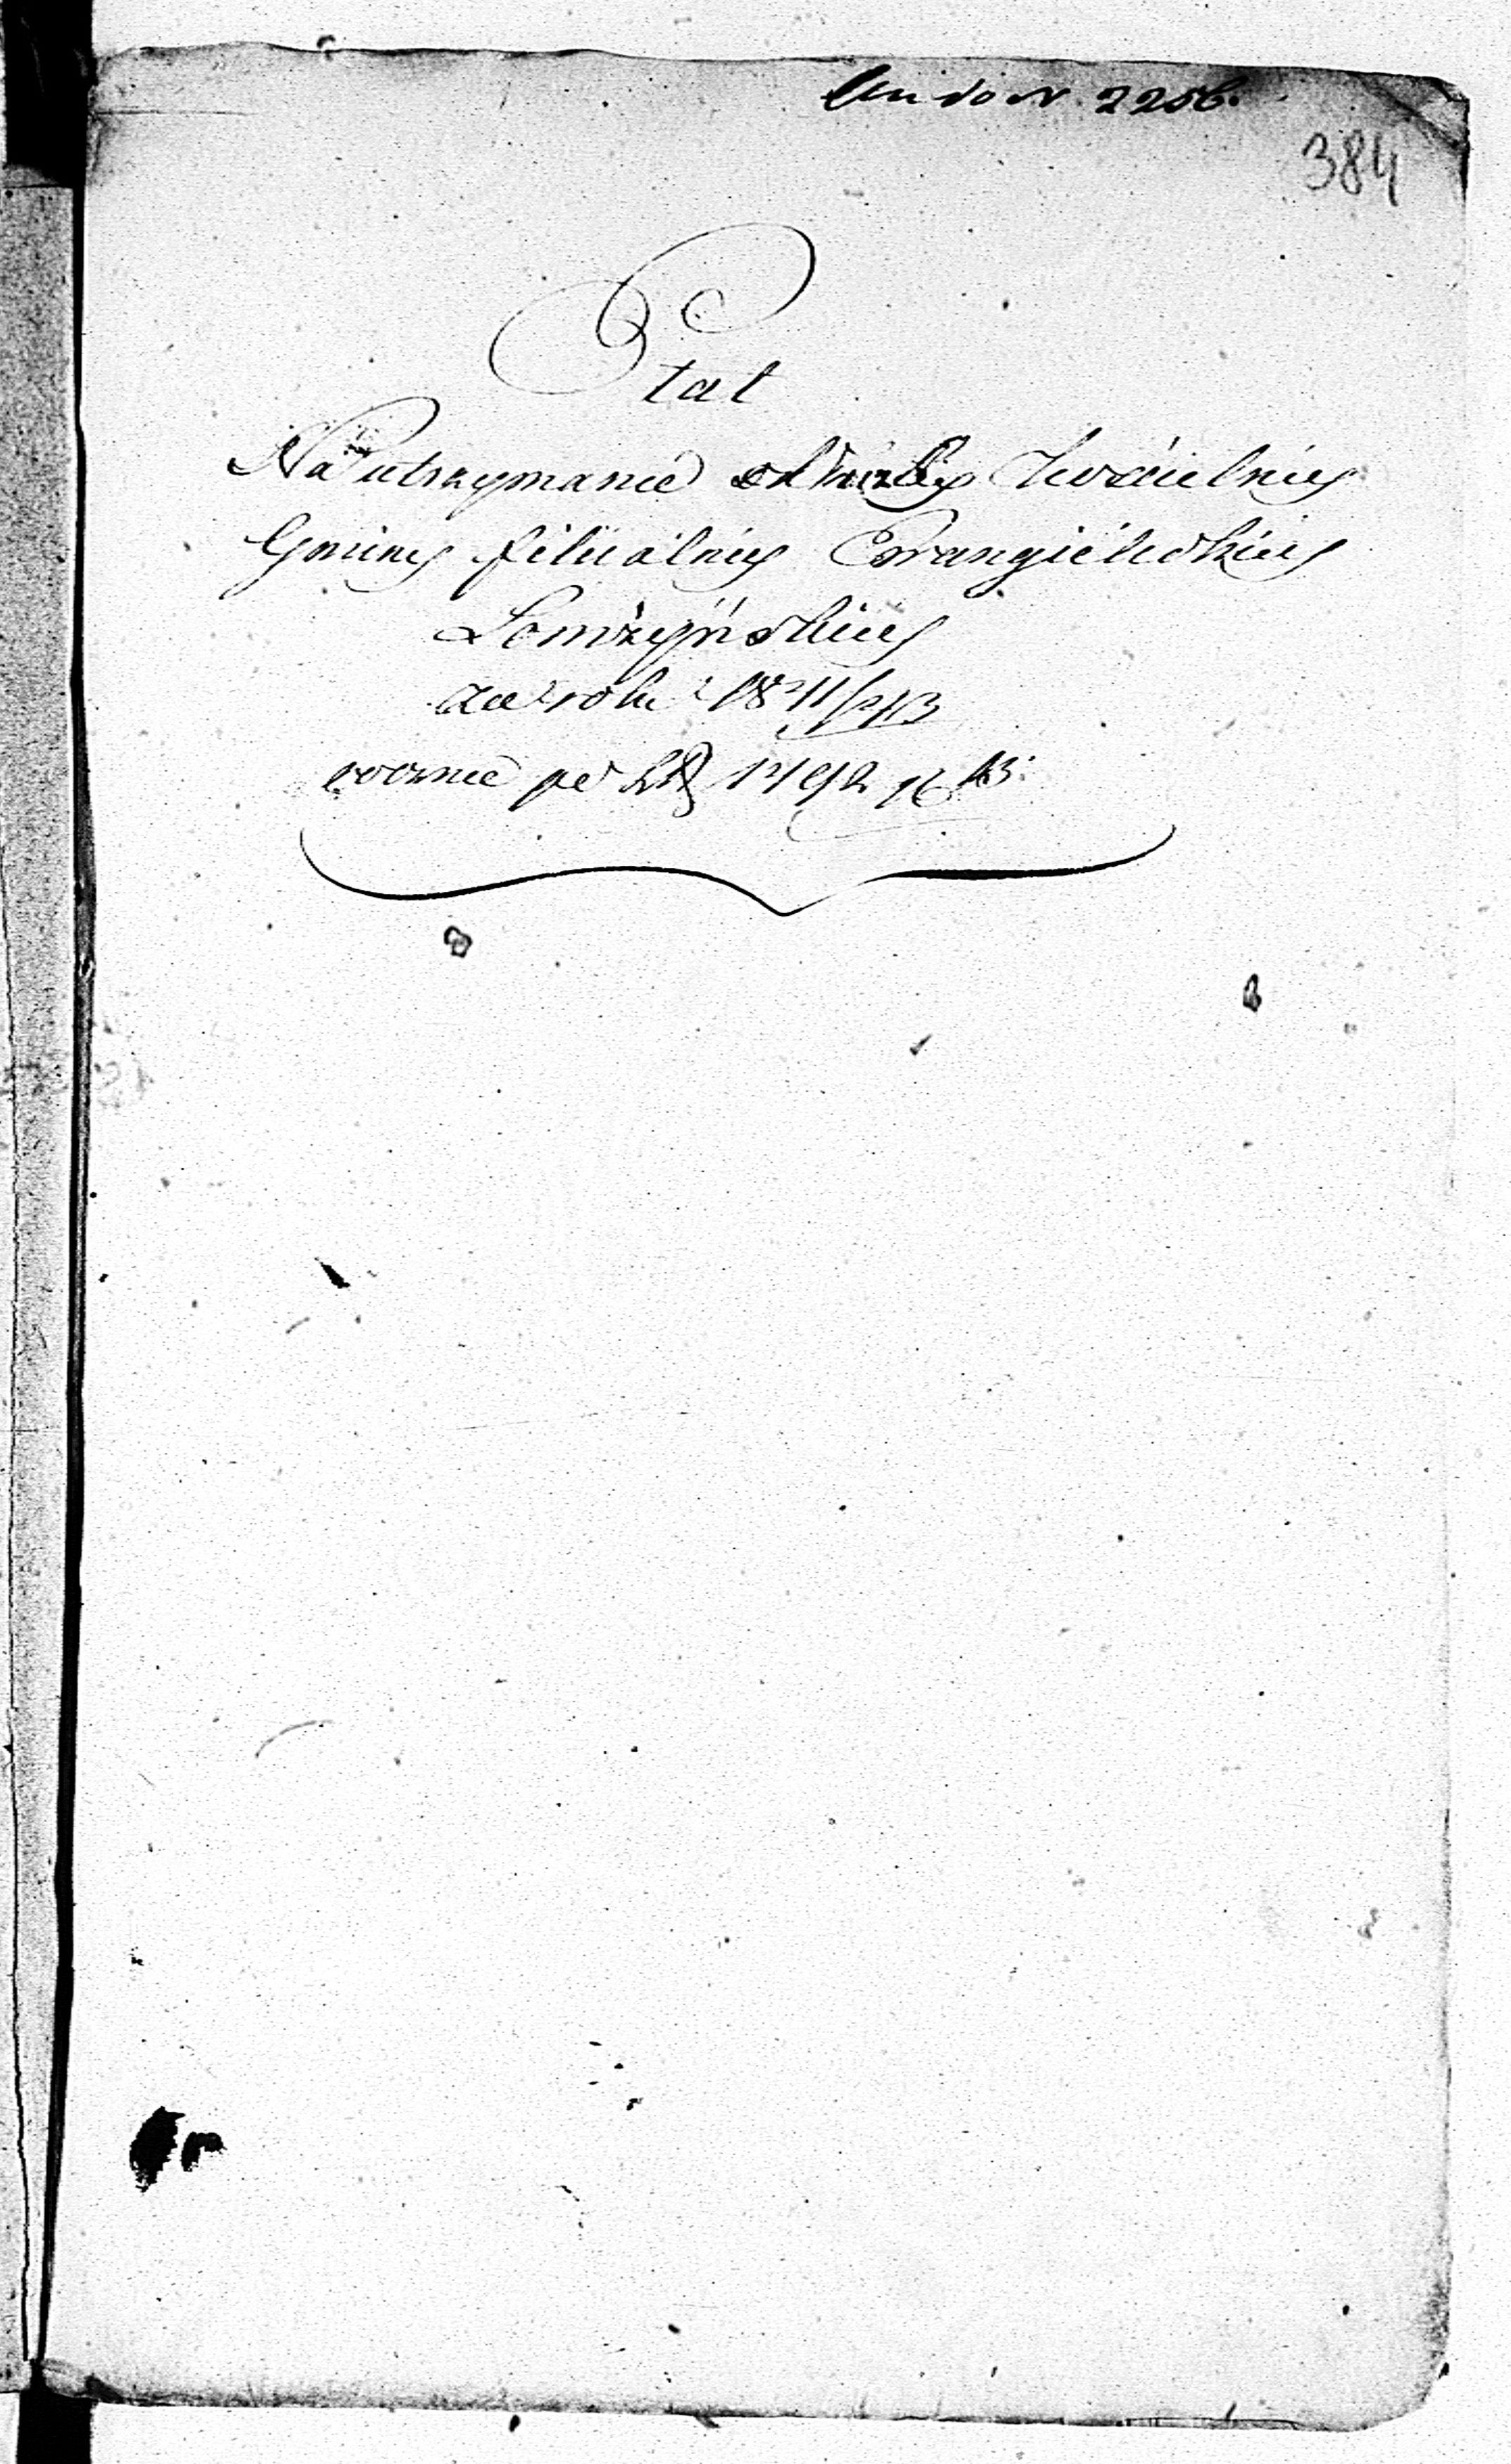 do N 2256.
384
Etat
Na utrzymanie służby Kościelney
Gminy filialney Ewangielickiey
Łomżyńskiey
rocznie po 1492 16